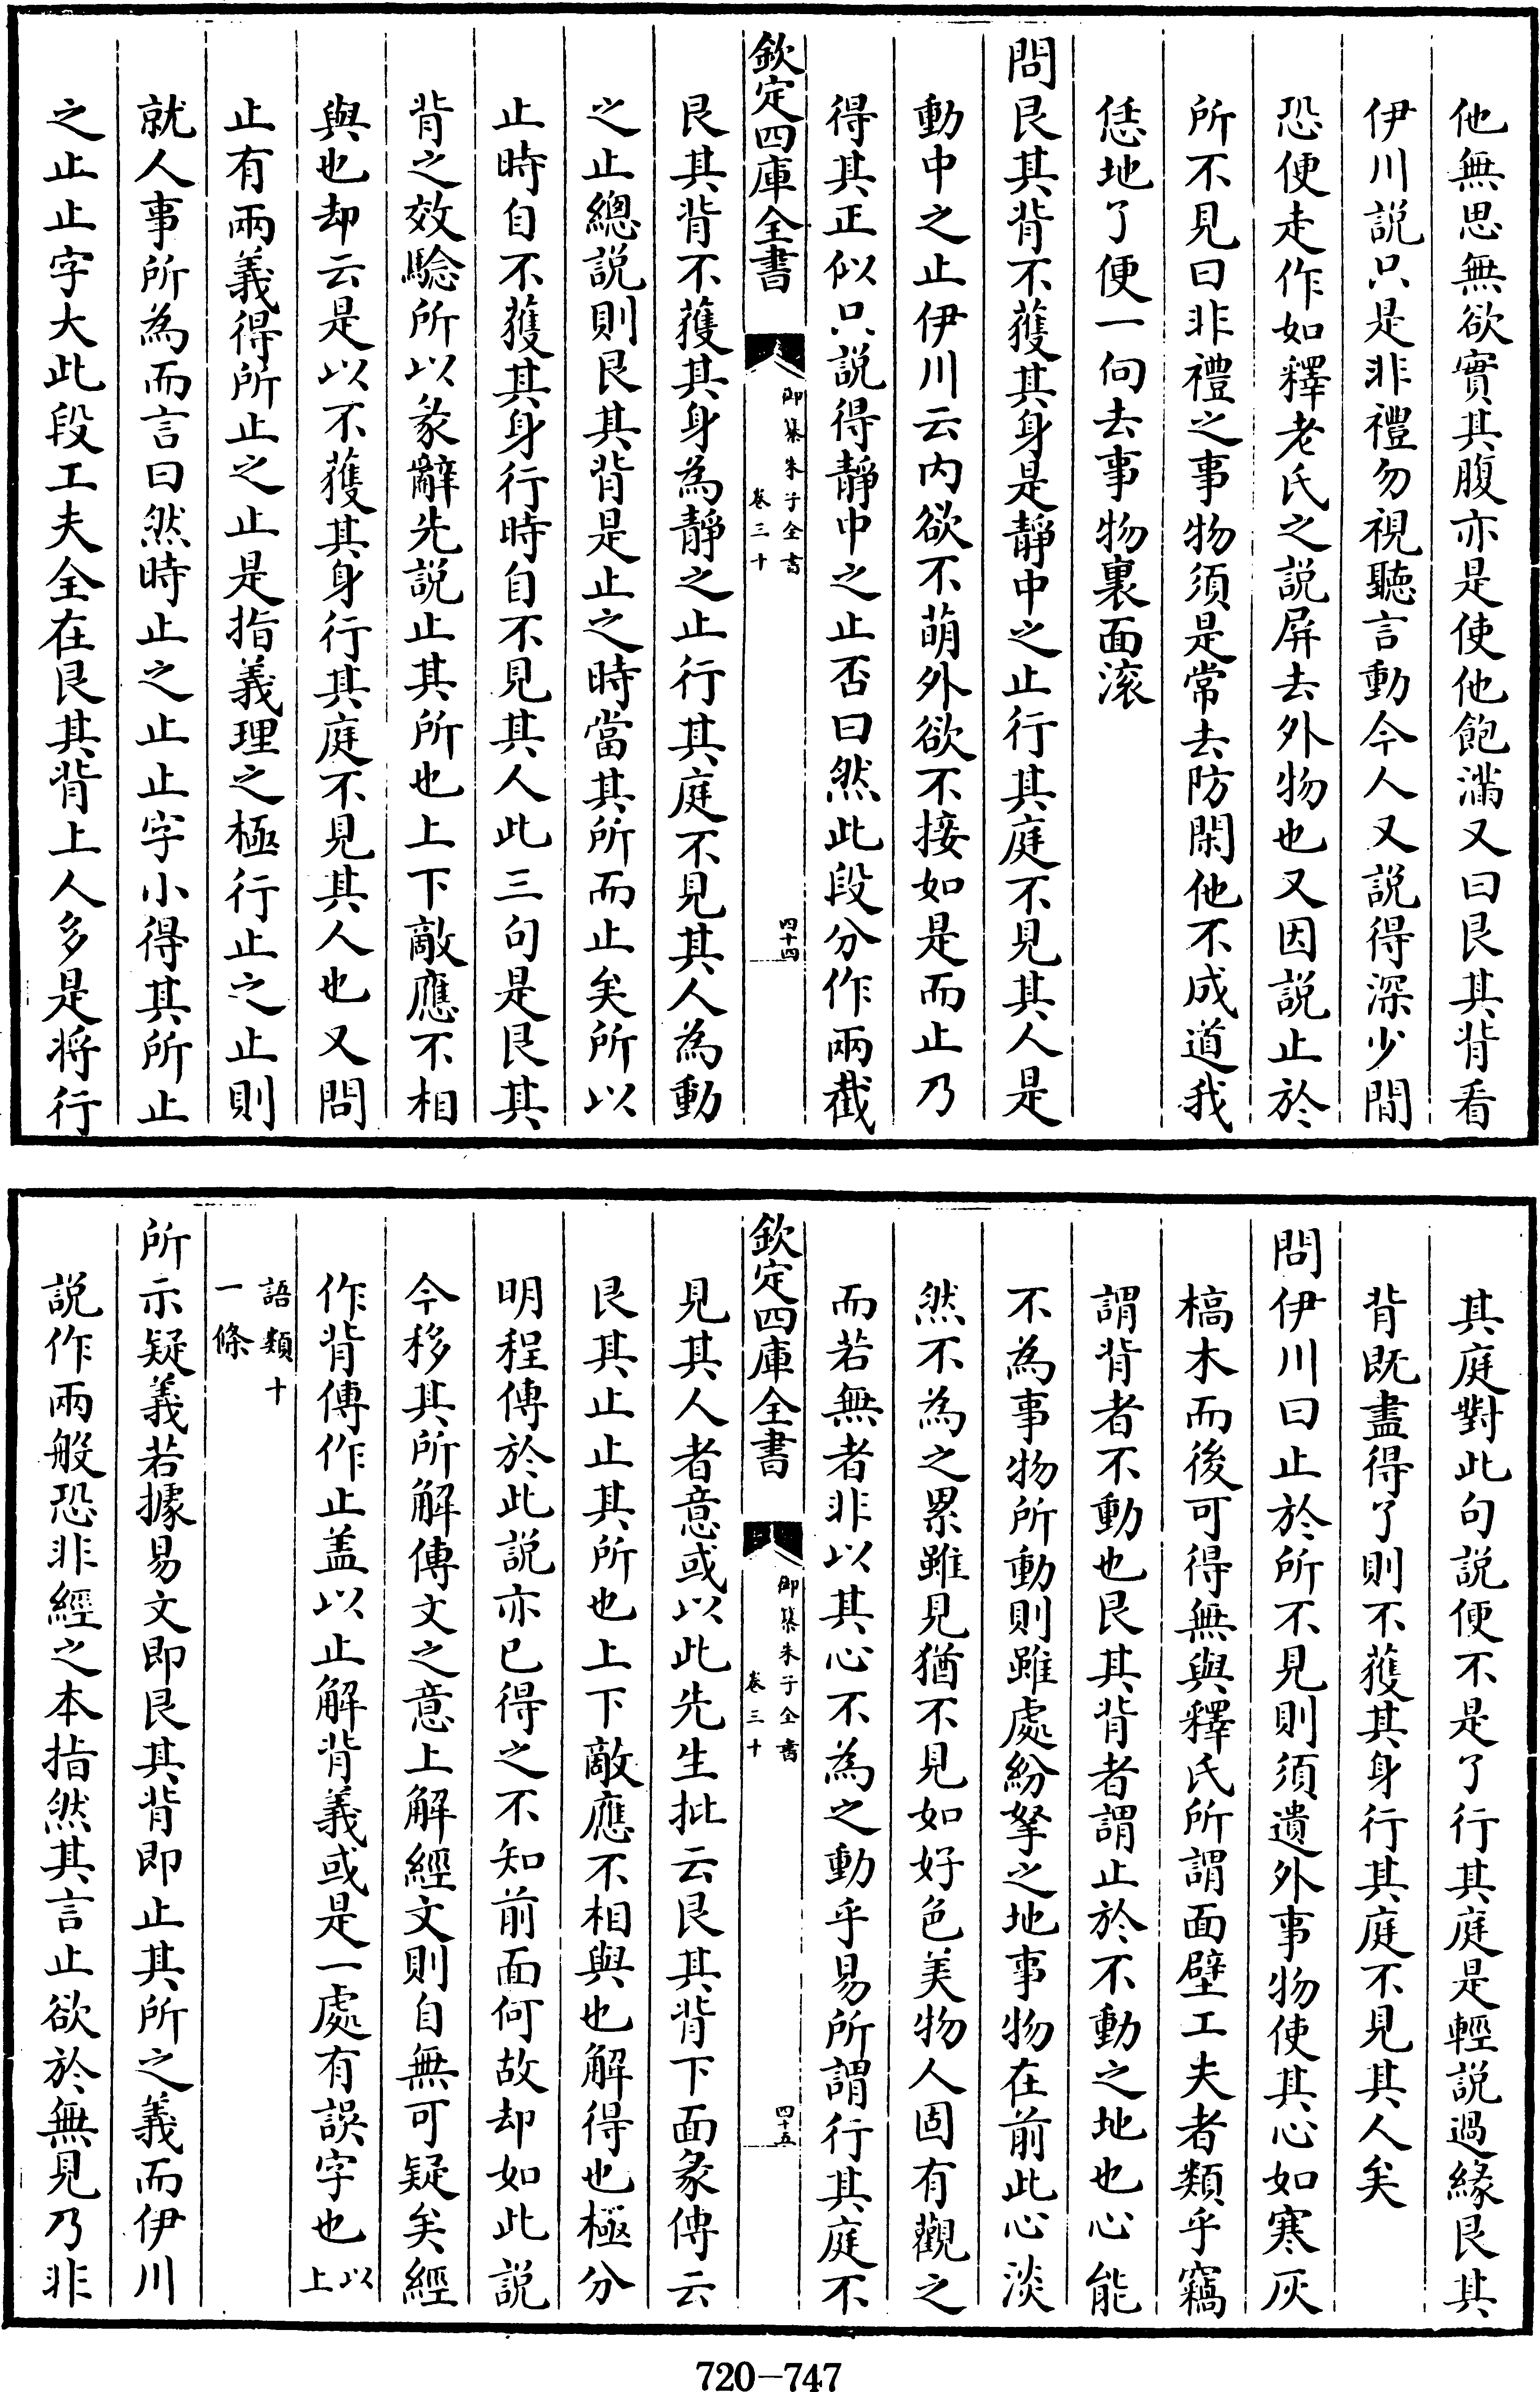 他無思無欲實其腹亦是使他飽滿又曰艮其背看
伊川説只是非禮勿視聽言動今人又説得深少間
恐便走作如釋老氏之説屏去外物也又因説止於
所不見曰非禮之事物須是常去防閑他不成道我
恁地了便一向去事物裏面滚
問艮其背不獲其身是靜中之止行其庭不見其人是
動中之止伊川云内欲不萌外欲不接如是而止乃
得其正似只説得靜中之止否曰然此段分作兩截
欽定四庫全書
御纂朱子全書
卷三十
四十四
艮其背不獲其身為靜之止行其庭不見其人為動
之止總説則艮其背是止之時當其所而止矣所以
止時自不獲其身行時自不見其人此三句是艮其
背之效驗所以彖辭先説止其所也上下敵應不相
與也却云是以不獲其身行其庭不見其人也又問
止有兩義得所止之止是指義理之極行止之止則
就人事所為而言曰然時止之止止字小得其所止
之止止字大此段工夫全在艮其背上人多是將行
其庭對此句説便不是了行其庭是輕説過緣艮其
背既盡得了則不獲其身行其庭不見其人矣
問伊川曰止於所不見則須遺外事物使其心如寒灰
槁木而後可得無與釋氏所謂面壁工夫者類乎竊
謂背者不動也艮其背者謂止於不動之地也心能
不為事物所動則雖處紛拏之地事物在前此心淡
然不為之累雖見猶不見如好色美物人固有觀之
而若無者非以其心不為之動乎易所謂行其庭不
欽定四庫全書
御纂朱子全書
卷三十
四十五
見其人者意或以此先生批云艮其背下面彖傳云
艮其止止其所也上下敵應不相與也解得也極分
明程傳於此説亦已得之不知前面何故却如此説
今移其所解傳文之意上解經文則自無可疑矣經
作背傳作止盖以止解背義或是一處有誤字也以上
語類十
一條
所示疑義若據易文即艮其背即止其所之義而伊川
説作兩般恐非經之本指然其言止欲於無見乃非
720-747